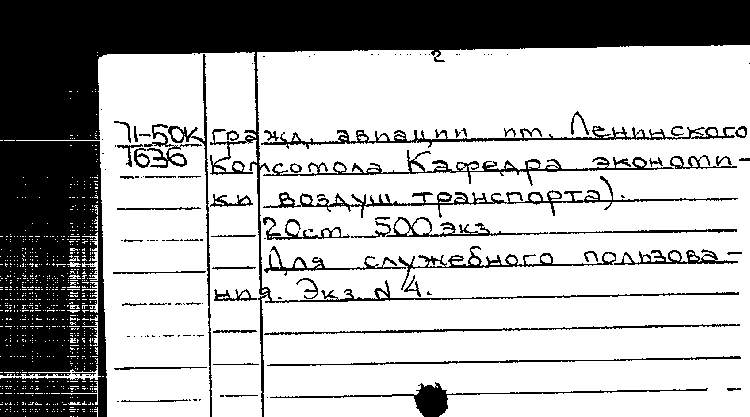 2
71-50К гражд. авиации им. Ленинского
1636 Комсомола Кафедра экономи-
ки воздуш. транспорта).
20см 500 экз.
Для служебного пользова-
ния. Экз. N 4.